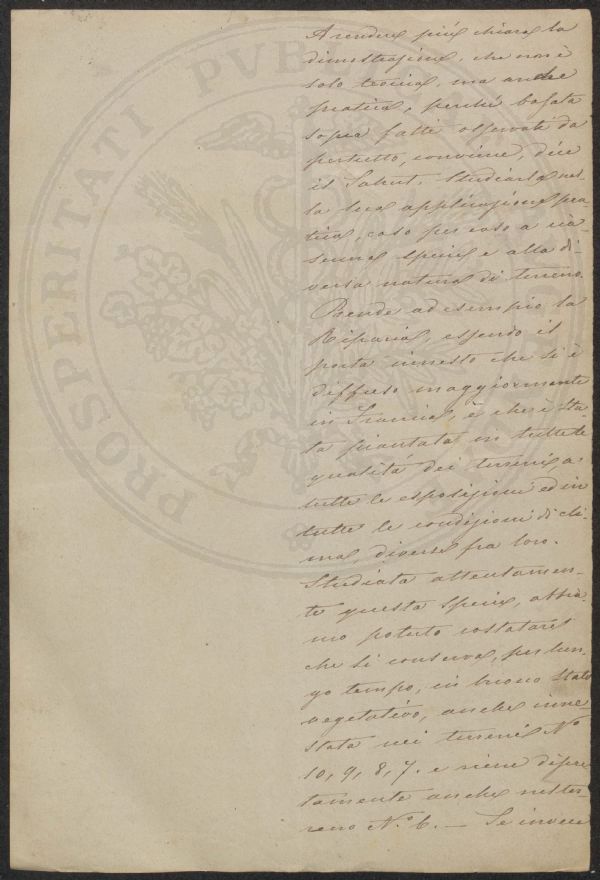 A rendere piú chiara la
dimostrazione, che non è
solo teorica, ma anche
pratica, perché basata
sopra fatti osservati da
pertutto, conviene, dice
il Sahut, studiarla nel-
la sua applicazione pra-
tica, caso per caso a cia-
scuna specie e alla di-
versa natura di terreno.
Prende ad esempio la
Riparia, essendo il
porta innesto che si è
diffuso maggiormente
in Francia, e che è sta-
ta piantata in tutte le
qualità dei terreni, a
tutte le esposizioni ed in
tutte le condizioni di cli-
ma, diverse fra loro.
Studiata attentamen-
te questa specie, abbia-
mo potuto costatare
che si conserva, per lun-
go tempo, in buono stato
vegetativo, anche inne
stata nei terreni No
10, 9, 8, 7. e viene discre
tamente anche nel ter-
reno No 6. — Se invece
PROSPERITATI PVB